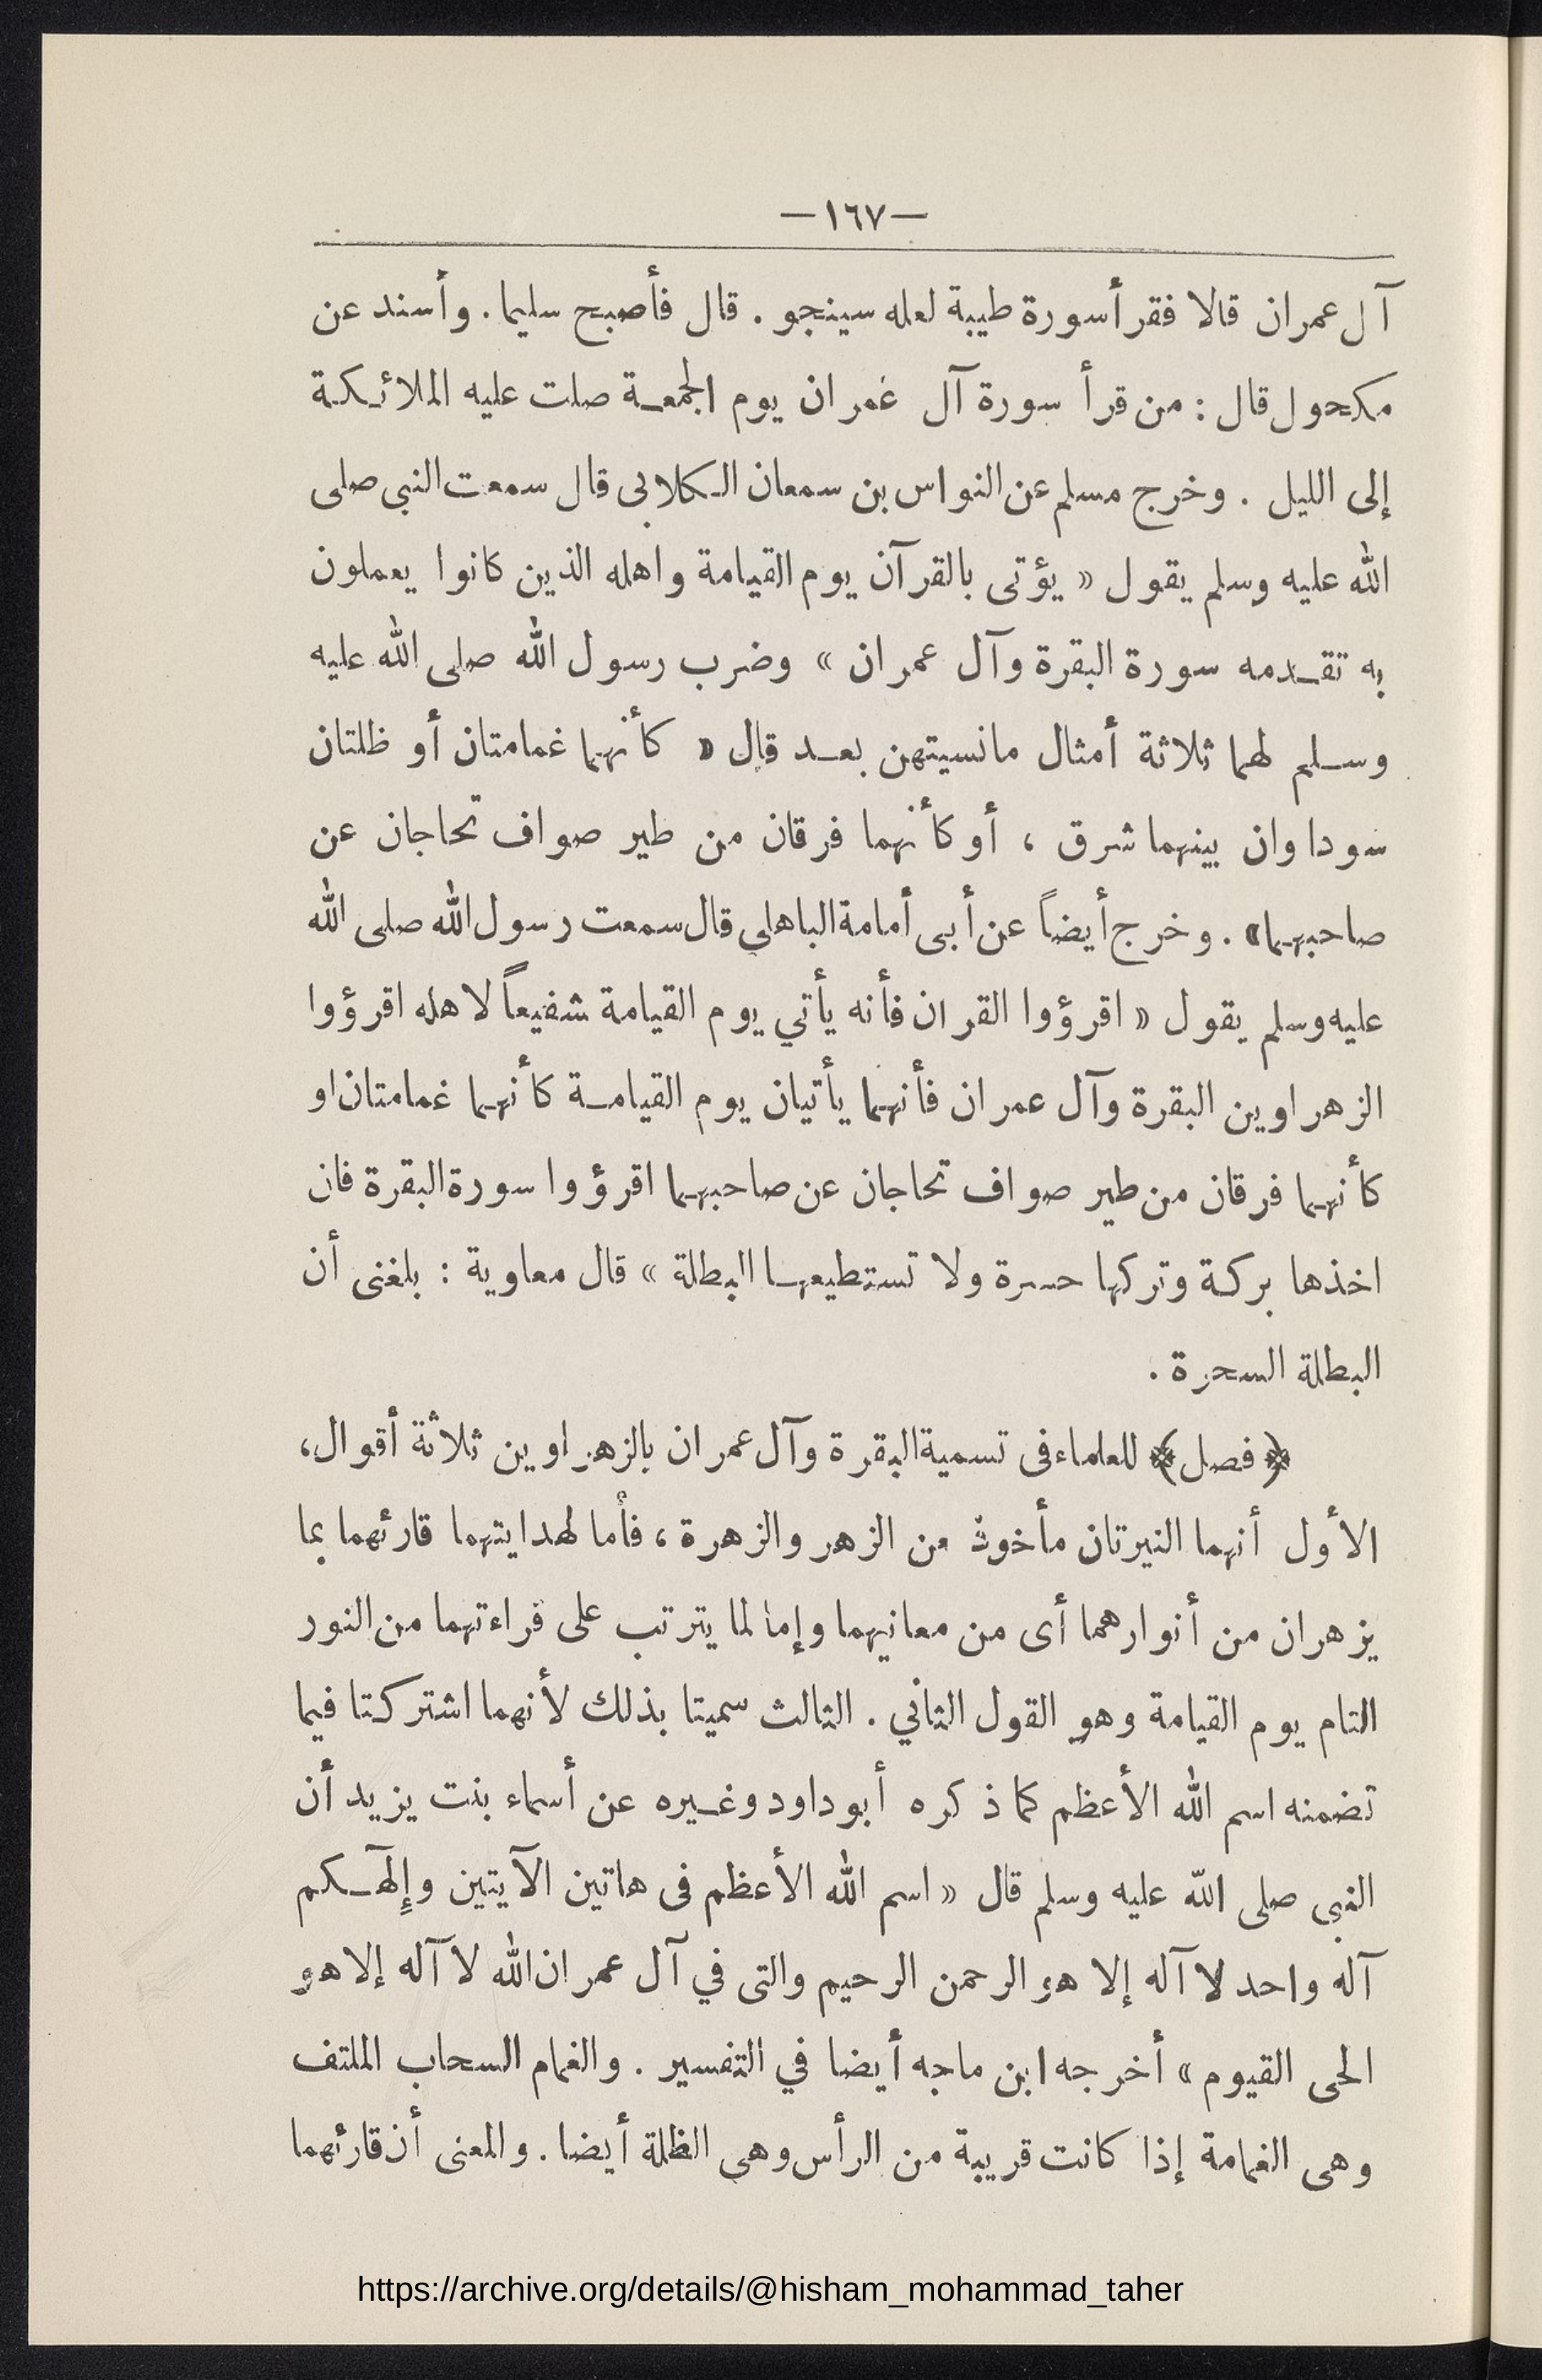 —١٦٧—
آل عمران قالا فقرأ سورة طيبة لعله سينجو . قال فأصبح سليما . وأسند عن
مكحول قال : من قرأ سورة آل غمران يوم الجمعة صلت عليه الملائكة
إلى الليل . وخرج مسلم عن النواس بن سمعان الكلابى قال سمعت النبى صلى
الله عليه وسلم يقول « يؤتى بالقرآن يوم القيامة واهله الذين كانوا يعملون
به تقدمه سورة البقرة وآل عمران » وضرب رسول الله صلى الله عليه
وسلم لهما ثلاثة أمثال مانسيتهن بعد قال « كأنهما غمامتان أو ظلتان
سوداوان بينهما شرق ، أوكأنهما فرقان من طير صواف تحاجان عن
صاحبهما» . وخرج أيضاً عن أبى أمامة الباهلى قال سمعت رسول الله صلى الله
عليه وسلم يقول « اقرؤوا القران فأنه يأتي يوم القيامة شفيعاً لاهله اقرؤوا
الزهراوين البقرة وآل عمران فأنهما يأتيان يوم القيامة كأنهما غمامتان او
كأنهما فرقان من طير صواف تحاجان عن صاحبهما اقرؤوا سورة البقرة فان
اخذها بركة وتركها حسرة ولا تستطيعها البطلة » قال معاوية : بلغنى أن
البطلة السحرة .
﴿ فصل ﴾ للعلماء فى تسمية البقرة وآل عمران بالزهراوين ثلاثة أقوال،
الأول أنهما النيرتان مأخوذ من الزهر والزهرة ، فأما لهدايتهما قارئهما بما
يزهران من أنوارهما أى من معانيهما وإما لما يترتب على قراءتهما من النور
التام يوم القيامة وهو القول الثاني . الثالث سميتا بذلك لأنهما اشتركتا فيما
تضمنه اسم الله الأعظم كما ذكره أبو داود وغيره عن أسماء بنت يزيد أن
النبى صلى الله عليه وسلم قال « اسم الله الأعظم فى هاتين الآيتين وإلهكم
آله واحد لا آله إلا هو الرحمن الرحيم والتى في آل عمران الله لا آله إلا هو
الحى القيوم » أخرجه ابن ماجه أيضا في التفسير . والغمام السحاب الملتف
وهى الغمامة إذا كانت قريبة من الرأس وهى الظلة أيضا . والمعنى أن قارئهما
https://archive.org/details/@hisham_mohammad_taher